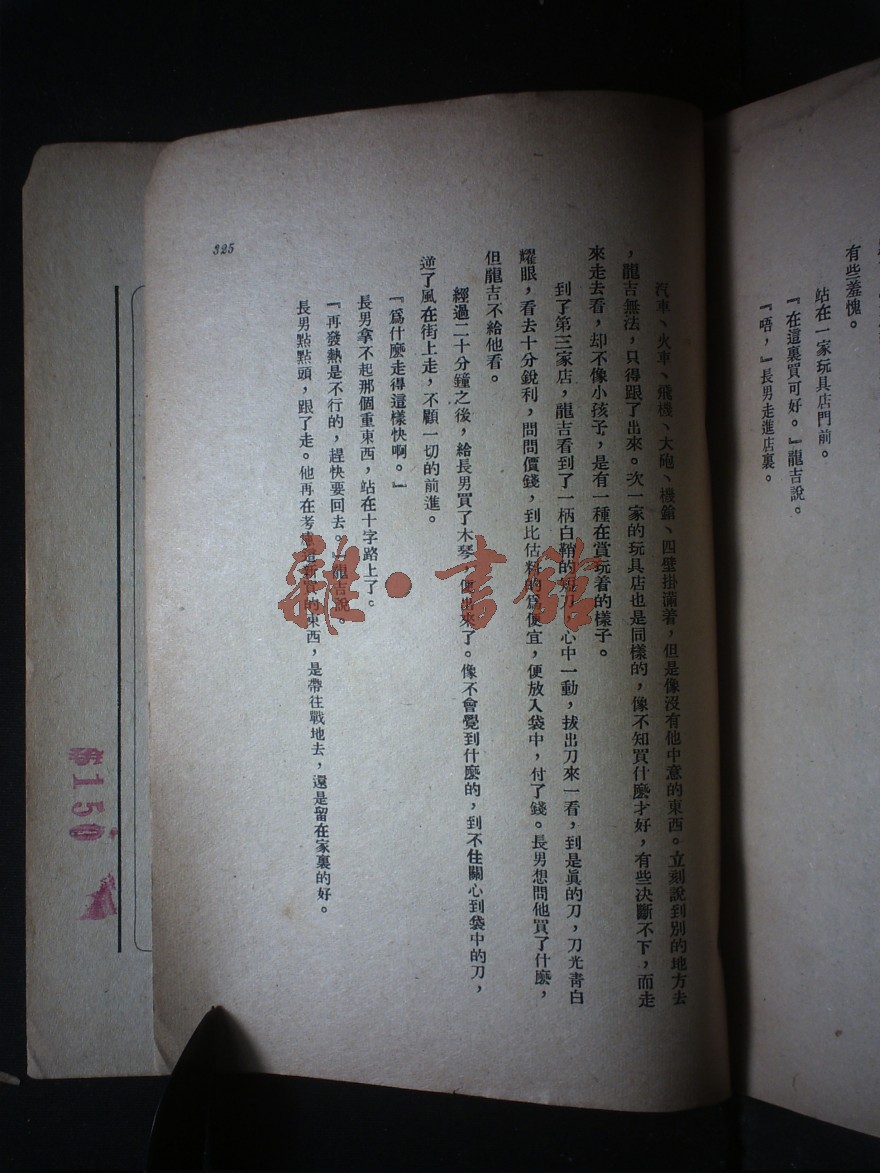 有些羞愧。
站在一家玩具店門前。
『在這裏買可好。』龍吉說。
『唔，』長男走進店裏。
汽車、火車、飛機、大砲、機鎗、四壁掛滿着，但是像沒有他中意的東西。立刻說到別的地方去
，龍吉無法，只得跟了出來。次一家的玩具店也是同樣的，像不知買什麼才好，有些決斷不下，而走
來走去看，却不像小孩子，是有一種在賞玩着的樣子。
到了第三家店，龍吉看到了一柄白鞘的短刀，心中一動，拔出刀來一看，到是眞的刀，刀光青白
耀眼，看去十分銳利，問問價錢，到比估料的爲便宜，便放入袋中，付了錢。長男想問他買了什麼，
但龍吉不給他看。
經過二十分鐘之後，給長男買了木琴，便出來了。像不會覺到什麼的，到不住關心到袋中的刀，
逆了風在街上走，不顧一切的前進。
『爲什麼走得這樣快啊。』
長男拿不起那個重東西，站在十字路上了。
『再發熱是不行的，趕快要回去。』龍吉說。
長男點點頭，跟了走。他再在考慮最新買的東西，是帶往戰地去，還是留在家裏的好。
325
雜·書館
$150